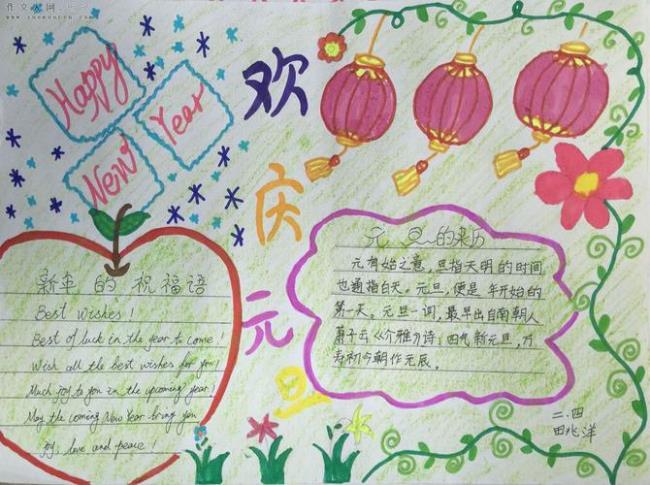 Happy
New
Year
欢
庆
元
旦
新年的祝福语
Best Wishes!
Best of luck in the year to come!
Wish all the best wishes for you!
Much joy to you in the upcoming year!
May the coming New Year bring you
joy, love and peace!
元旦的来历
元有始之意,旦指天明的时间
也通指白天。元旦,便是 年开始的
第一天。元旦一词,最早出自南朝人
萧子云《介雅》诗:四气新元旦,万
寿初今朝作元辰。
二.四
田兆洋